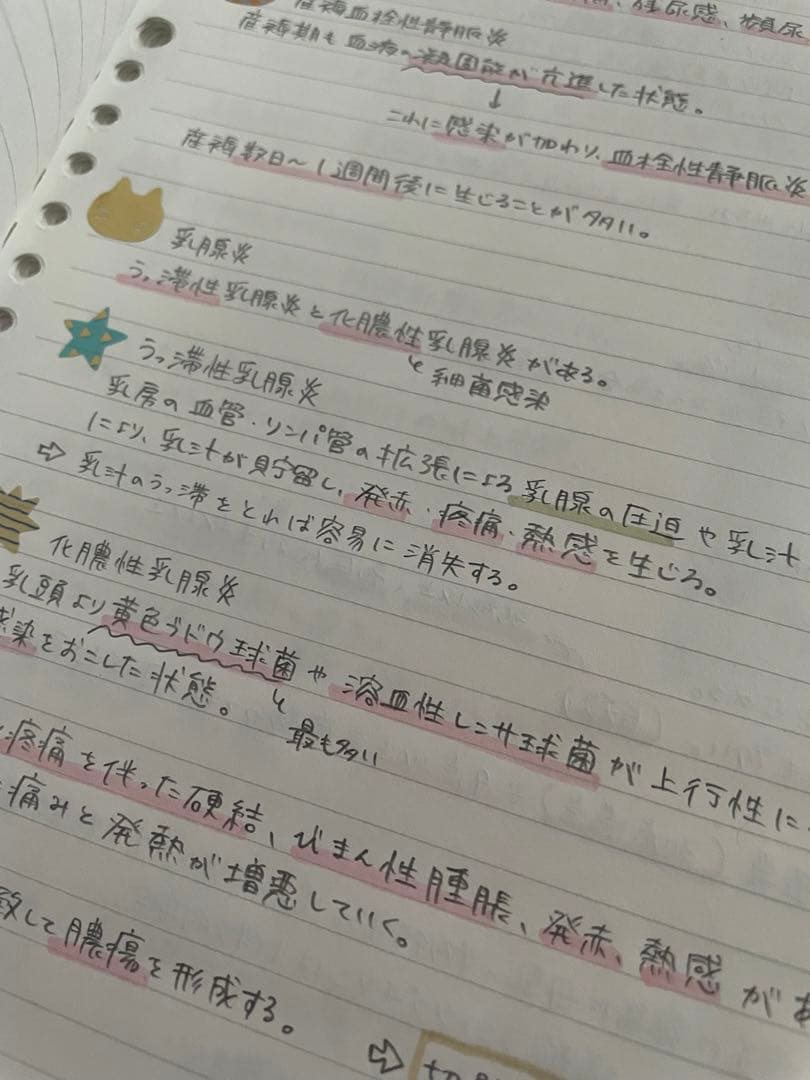 、残尿感、頻尿
産褥血栓性静脈炎
産褥期も血液の凝固能が亢進した状態。
↓
これに感染が加わり、血栓性静脈炎
産褥数日〜1週間後に生じることが多い。
乳腺炎
うっ滞性乳腺炎と化膿性乳腺炎がある。
↳細菌感染
うっ滞性乳腺炎
乳房の血管・リンパ管の拡張による乳腺の圧迫や乳汁
により、乳汁が貯留し、発赤・疼痛・熱感を生じる。
⇨ 乳汁のうっ滞をとれば容易に消失する。
化膿性乳腺炎
乳頭より黄色ブドウ球菌や溶血性レンサ球菌が上行性に
感染をおこした状態。
↳最も多い
疼痛を伴った硬結、びまん性腫脹、発赤、熱感があ
痛みと発熱が増悪していく。
して膿瘍を形成する。
⇨